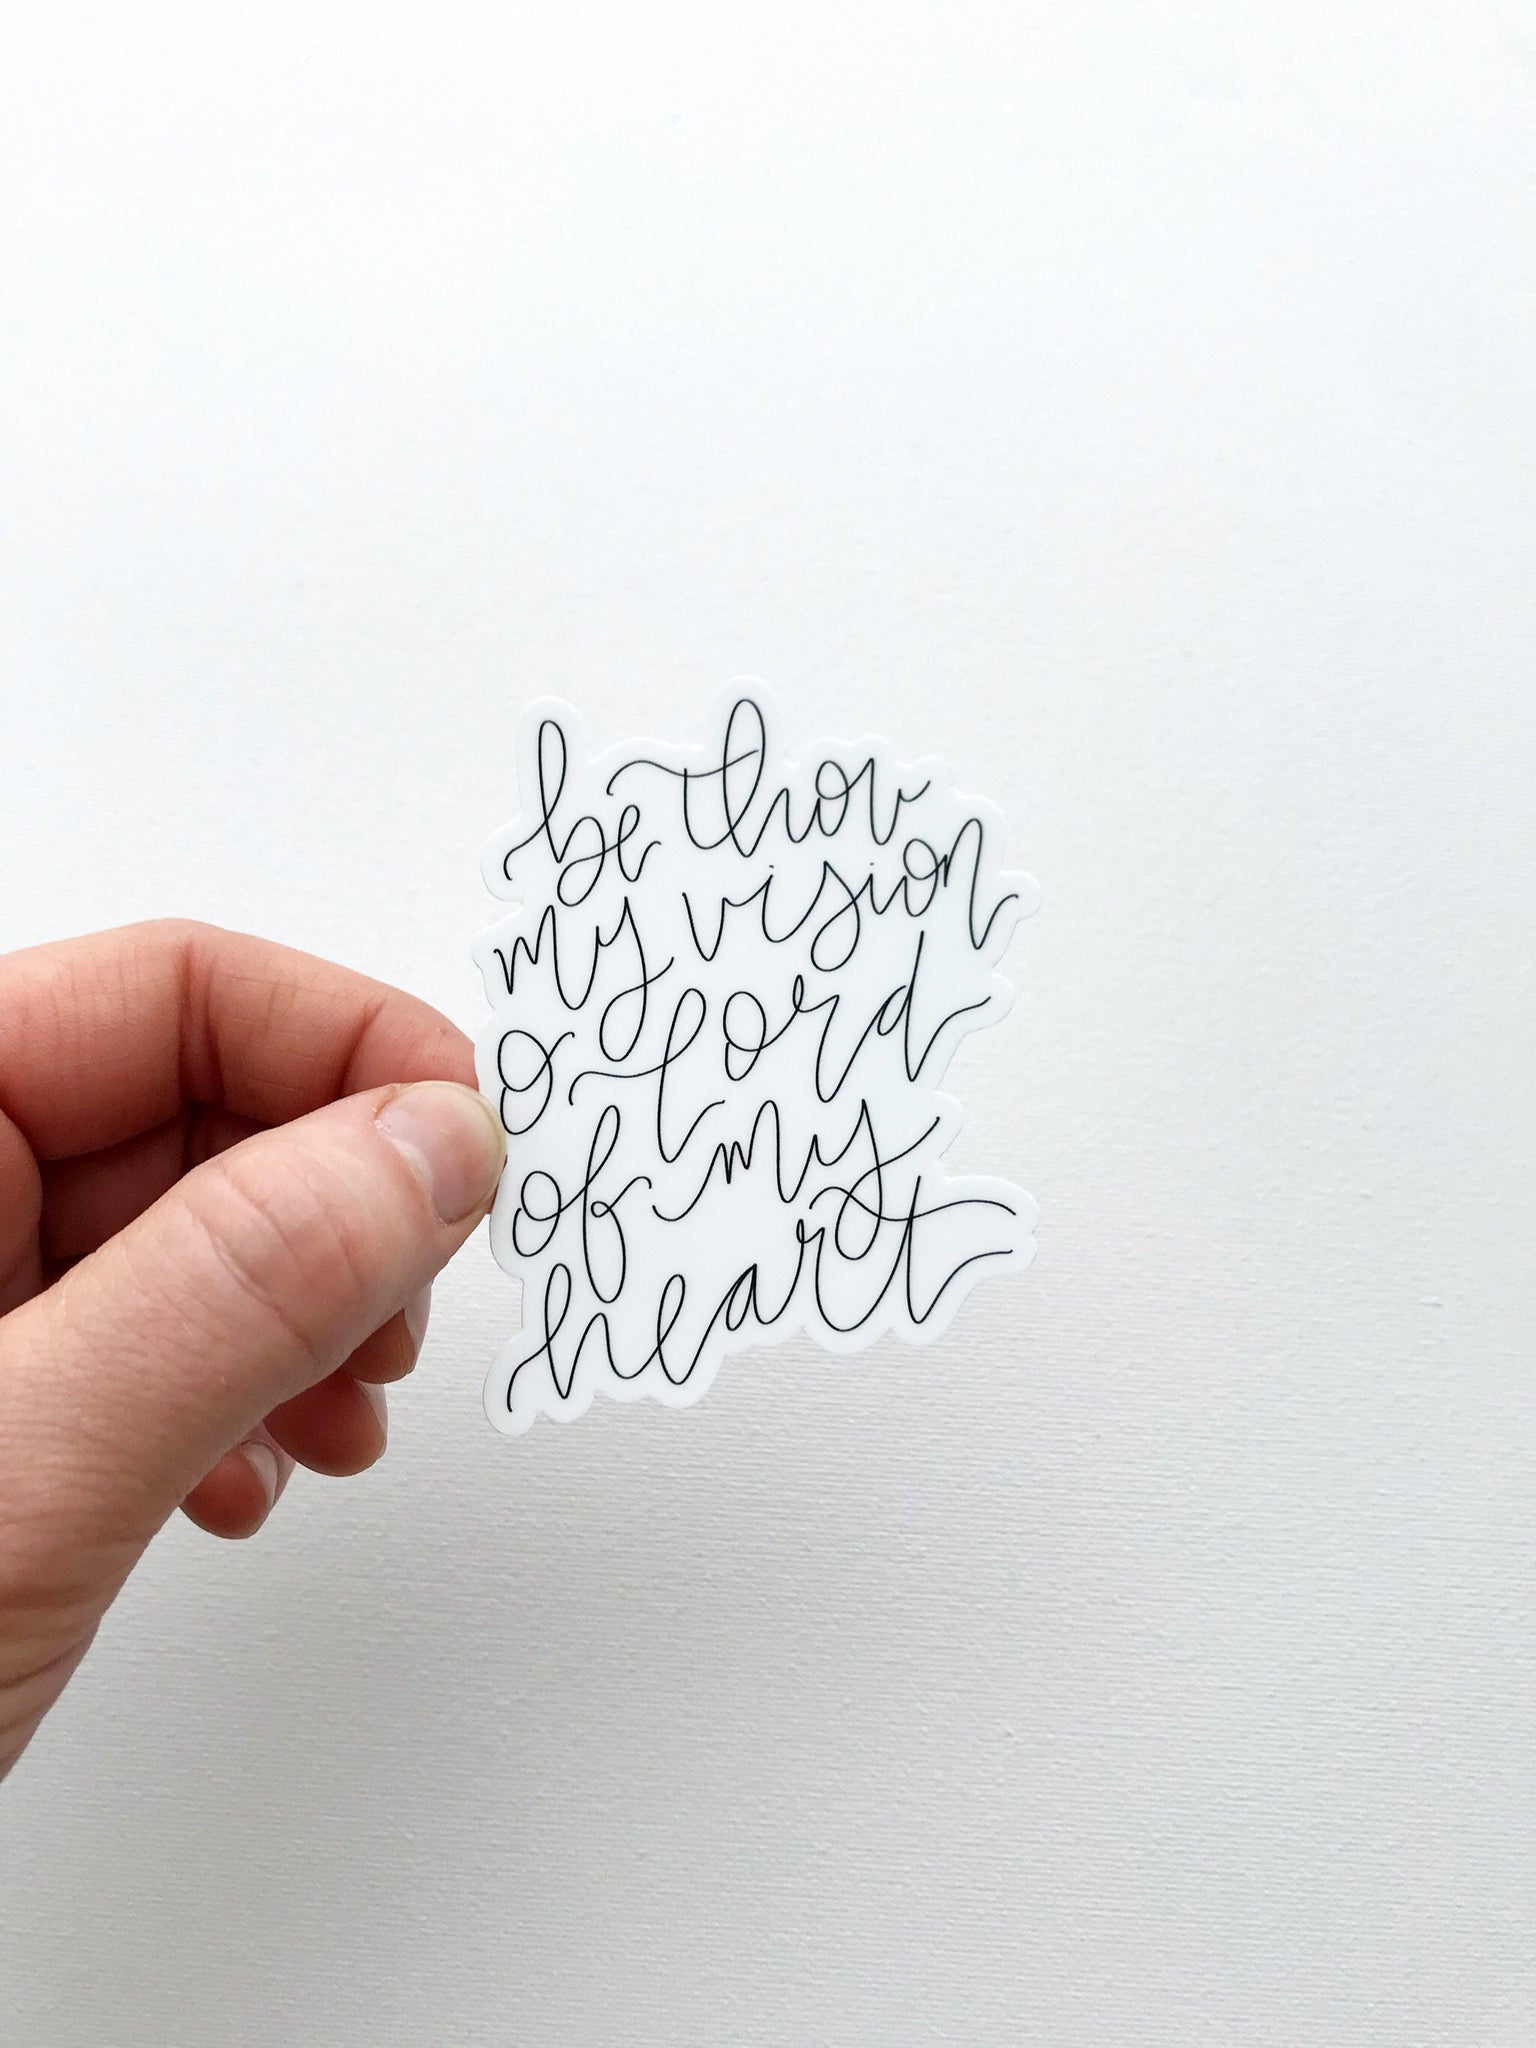 be thou
my vision
o Lord
of my
heart